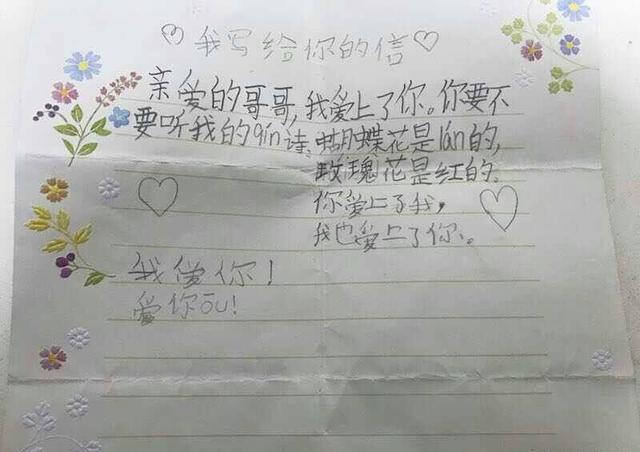 ♡我写给你的信♡
亲爱的哥哥,我爱上了你。你要不
要听我的qín诗.蝴蝶花是lán的,
玫瑰花是红的.
你爱上了我,
我也爱上了你。
我爱你!
爱你ōu!